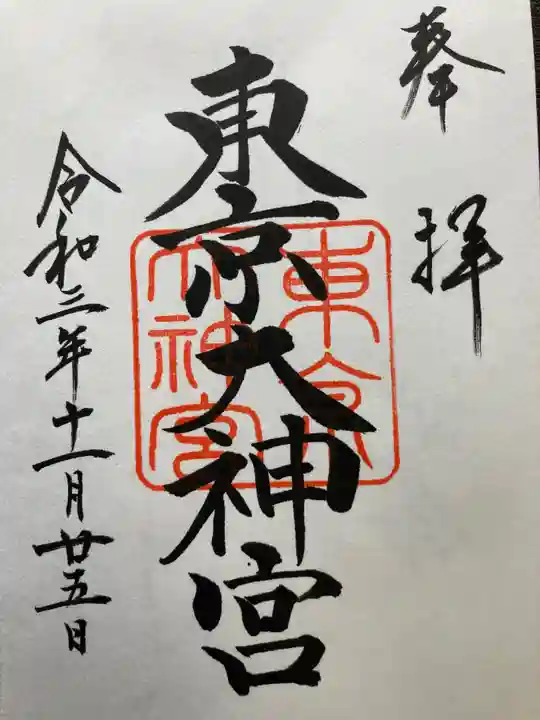 奉
拝
東京大神宮
東京
大神宮
令和三年十一月廿五日